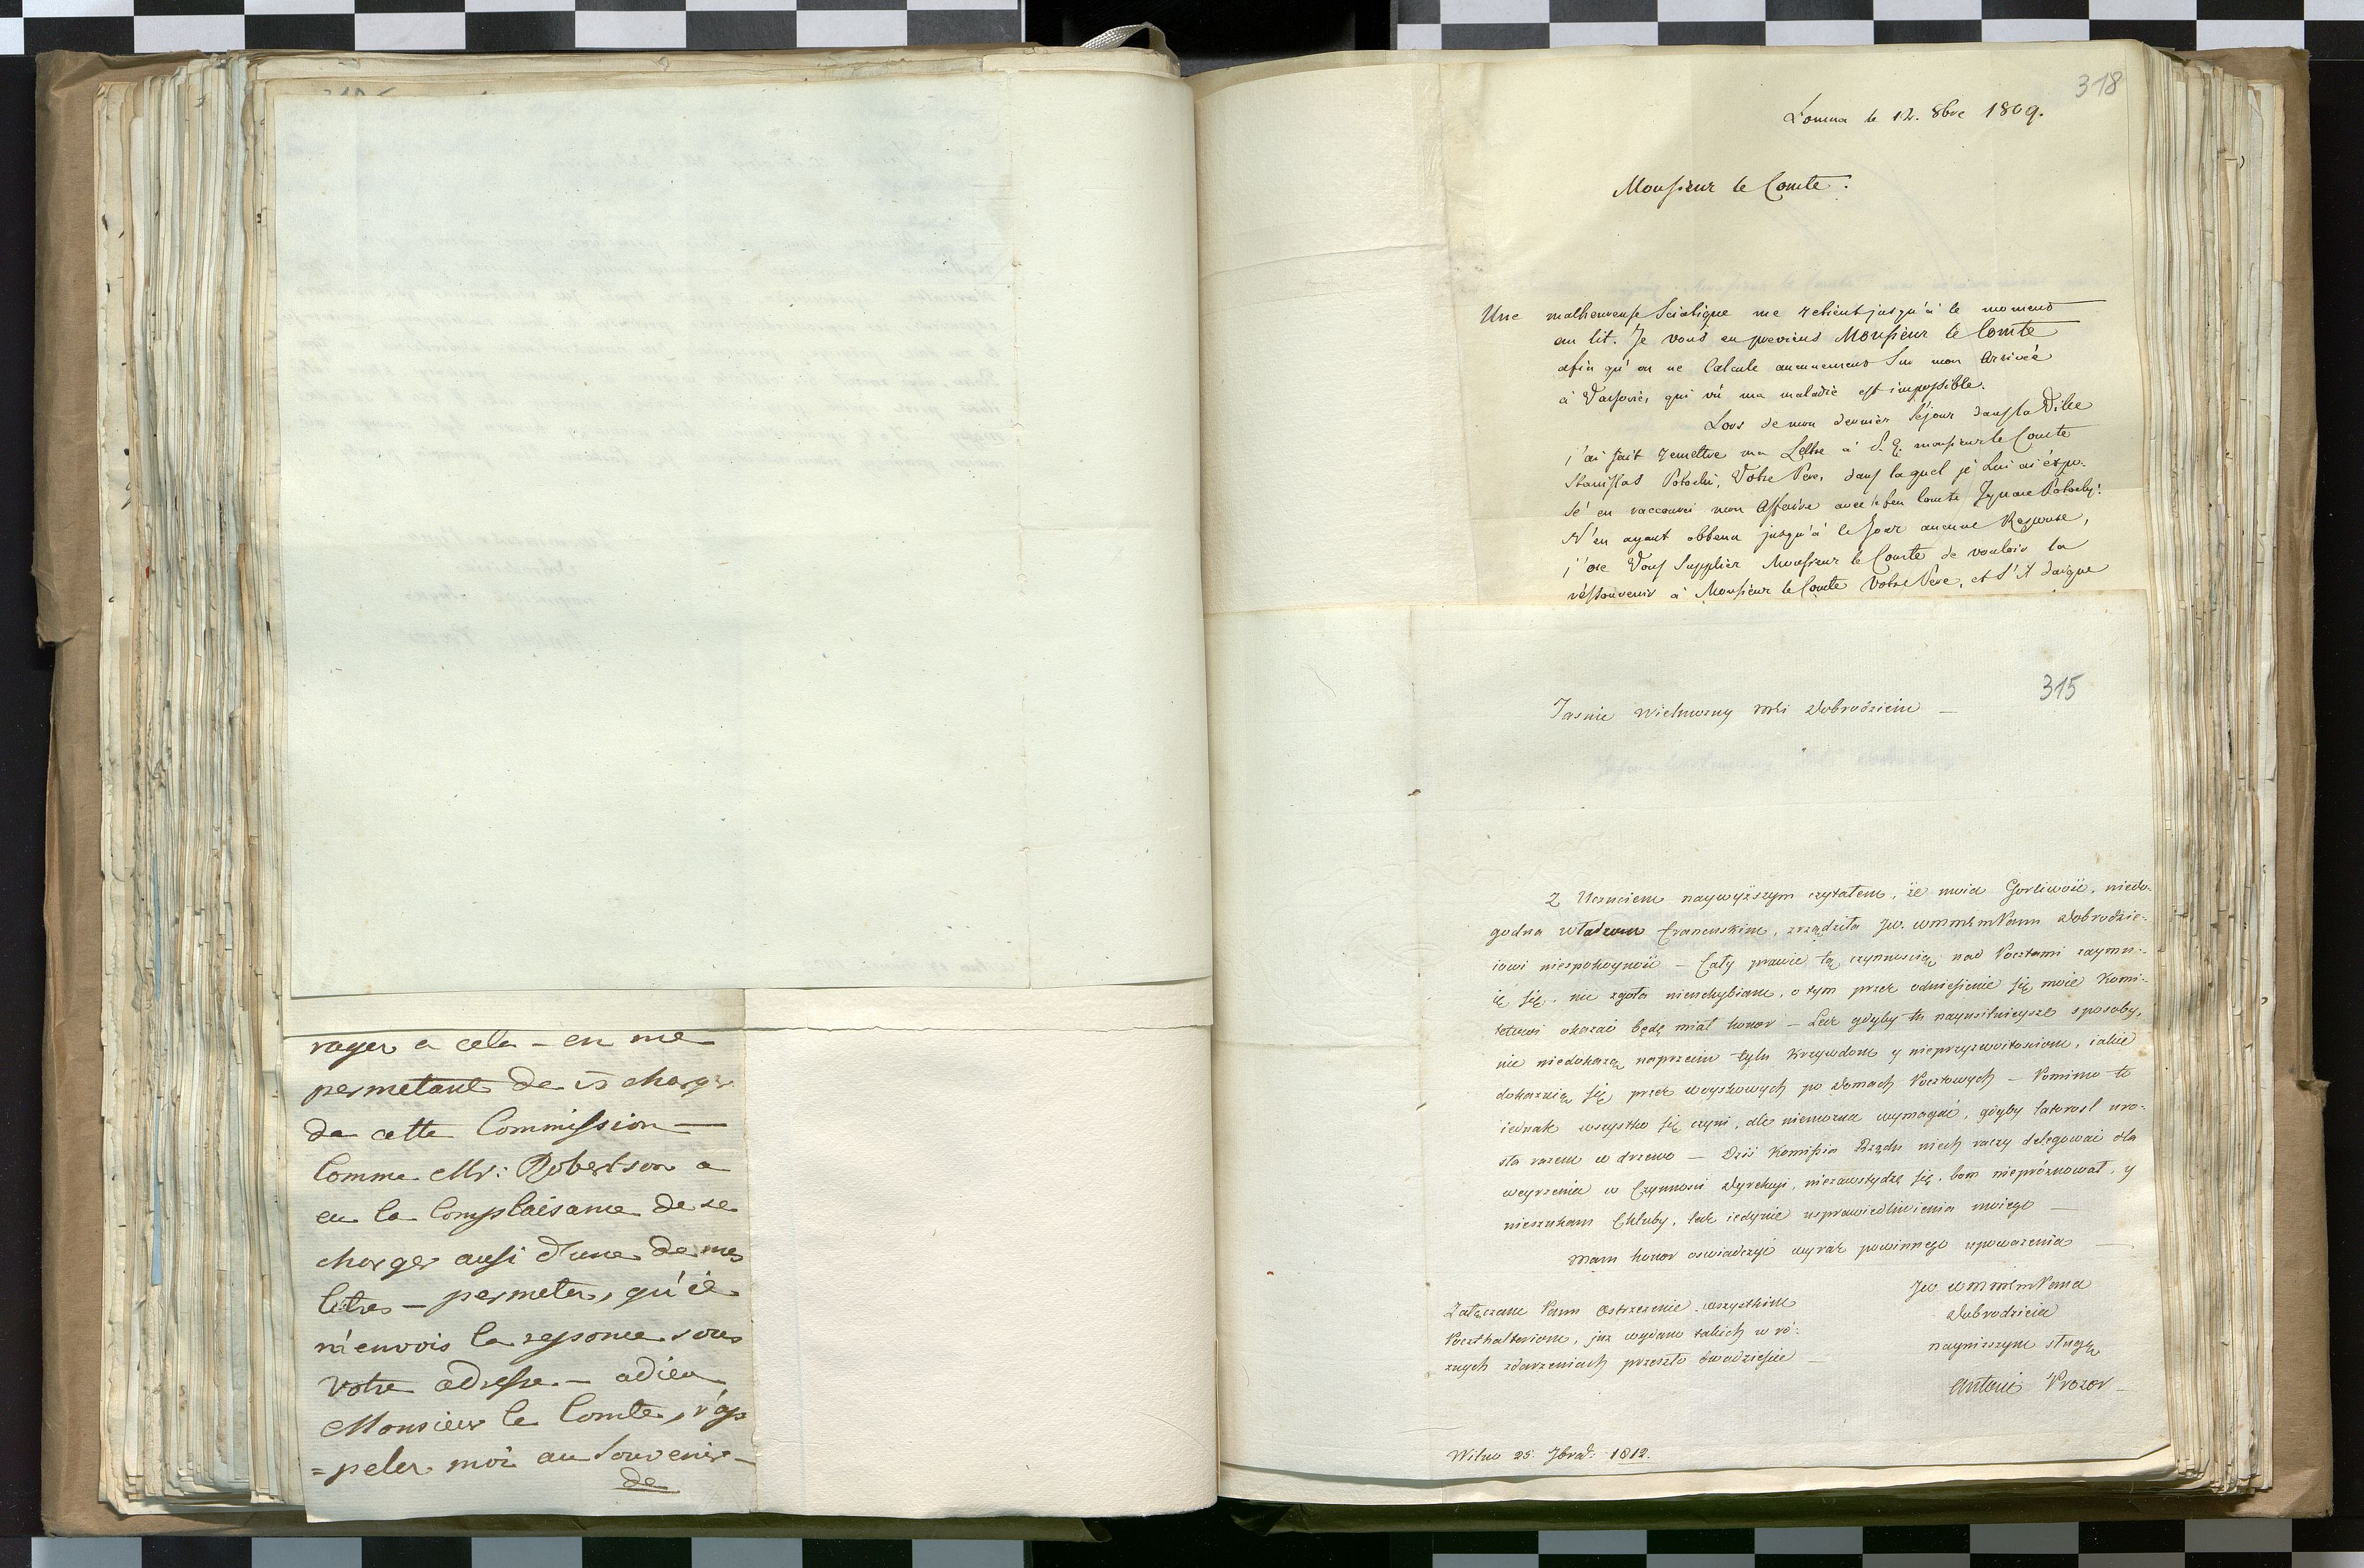 rager a cela – en me
permetant de vs charger
de cette Commission —
Comme Mr: Robertson a
eu la Complaisance de se
charger ausi d'une de mes
letres – permetez, qu'il
m'envois la reponce sous
votre adresse. – adieu
Monsieur le Comte, rap
=peler moi au Souvenir –
de
318
Łomna le 12. 8bre 1809.
Monsieur le Comte.
Une malheureuse Sciatique me retient jusqu'à ce moment
au lit. Je vous en previens Monsieur le Comte
afin qu'on ne Calcule aucunement Sur mon Arrivée
à Varsovie, qui vû ma maladie est impossible.
Lors de mon dernier Séjour dans la Ville
j'ai fait remettre ma Lettre à S. E. monsieur le Comte
Stanislas Potocki, Votre Pere, dans laquel je Lui ai éxpo-
sé en raccourci mon Affaire avec le feu Comte Ignace Potocky.
N'en ayant obtenu jusqu'à ce Jour aucune Response,
j'ose Vous Supplier Monsieur le Comte de vouloir la
réssouvenir à Monsieur le Comte Votre Pere, et S'il daigne
315
Jasnie Wielmozny Dobrodzieiu —
Z Uczuciem naywyższym czytałem, że moia Gorliwość, niedo-
godna władzom francuskim, zrządziła JW. WMM Panu Dobrodzie-
iowi niespokoyność – Cały prawie tą czynnością nad Pocztami zaymu-
ię się, nic zgoła nieuchybiam, o tym przez odniesienie się moie Komi-
tetowi okazać będę miał honor – Lecz gdyby tu nayusilnieysze sposoby,
nic niedokażą naprzeciw tylu krzywdom y nieprzyzwoitosciom, iakie
dokazuią się przez woyskowych po domach Pocztowych – Pomimo to
iednak wszystko się czyni, ale niemożna wymagać, gdyby latorosl uro-
sła razem w drzewo — Dziś Komissia Rządu niech raczy delegować dla
weyrzenia w Czynności Dyrekcyi, niezawstydzę się, bom niepróżnował, y
nieszukam Chluby, lecz iedynie usprawiedliwienia moiego —
Mam honor oswiadczyć wyraz powinnego uposzażenia —
JW WMM Pana
Dobrodzieia
nayniższym sługą
Antoni Prozor —
Załączam Panu Ostrzeżenie wszystkim
Poczthalterom, już wydano takich w ró-
żnych zdarzeniach przeszło dwadzieście —
Wilno 25. 7bra: 1812.